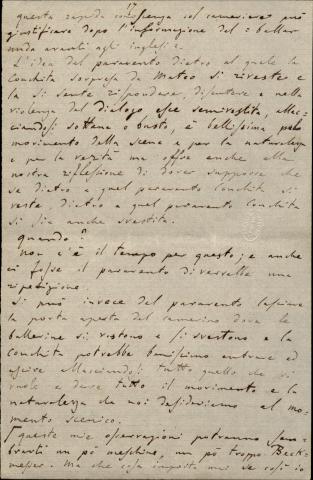 17
questa rapida confidenza col cameriere può
giustificare dopo l'informazione del: ballar
nuda avanti agli inglesi.
L'idea del paravento dietro al quale la
Conchita sorpresa da Mateo si riveste e
la si sente rispondere, discutere e nella
violenza del dialogo esce semivestita, allac-
ciandosi sottana o busto, è bellissima pel
movimento della scena e per la naturalezza
e per la verità ma offre anche alla
nostra riflessione di dover supporre che
se dietro a quel paravento Conchita si
veste, dietro a quel paravento Conchita
si sia anche svestita.
quando?
Non c'è il tempo per questo; e anche
ci fosse il paravento diverrebbe una
ripetizione.
Si può invece del paravento lasciare
la porta aperta del camerino dove le
ballerine si vestono e si svestono e la
Conchita potrebbe benissimo entrare ed
uscire allacciandosi tutto quello che si
vuole e dare tutto il movimento e la
naturalezza che noi desideriamo al mo-
mento scenico.
queste mie osservazioni potranno sem-
brarti un pò meschine, un pò troppo Beck-
messer. Ma che cosa importa mai se così io